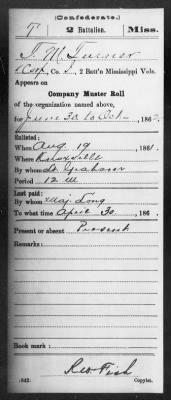 (Confederate.)
T 2 Battalion. Miss.
J. M. Turner
Corp., Co. , 2 Batt'n Mississippi Vols.
Appears on
Company Muster Roll
of the organization named above,
for June 30 to Oct , 186
Enlisted:
When Aug 19 , 186 .
Where Knoxville
By whom Lt Graham
Period 12 M
Last paid:
By whom Maj. Long
To what time April 30 , 186 .
Present or absent Present
Remarks:
Book mark:
(642) Copyist.